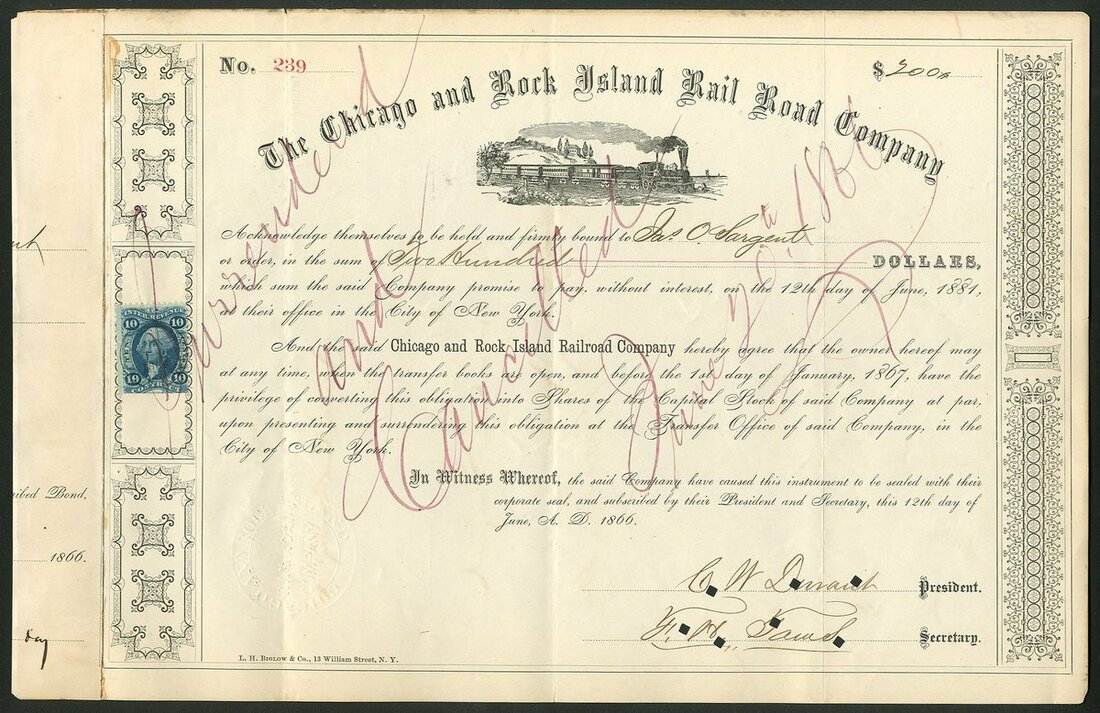 No. 239
$ 200
The Chicago and Rock Island Rail Road Company
Acknowledge themselves to be held and firmly bound to Jas. O. Sargent
or order, in the sum of Two Hundred DOLLARS,
which sum the said Company promise to pay, without interest, on the 12th day of June, 1881,
at their office in the City of New York.
And the said Chicago and Rock Island Railroad Company hereby agree that the owner hereof may
at any time, when the transfer books are open, and before the 1st day of January, 1867, have the
privilege of converting this obligation into Shares of the Capital Stock of said Company at par,
upon presenting and surrendering this obligation at the Transfer Office of said Company, in the
City of New York.
In Witness Whereof, the said Company have caused this instrument to be sealed with their
corporate seal, and subscribed by their President and Secretary, this 12th day of
June, A. D. 1866.
C. W. Durant President.
F. H. Tows Secretary.
L. H. BIGLOW & Co., 13 William Street, N. Y.
Surrendered
and
Cancelled
June
INTER. REVENUE
10 10
10 10
ribed Bond,
1866.
day